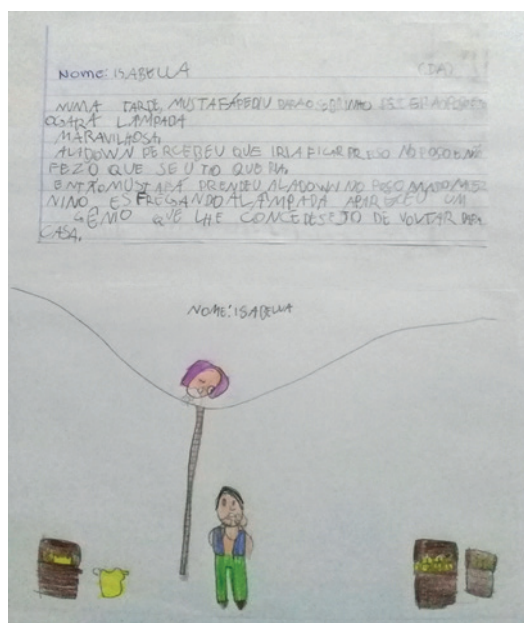 NOME: ISABELLA
NUMA TARDE, MUSTAFÁ PEDIU PARA O SOBRINHO
LAMPADA
MARAVILHOSA.
ALADOWN PERCEBEU QUE IRIA FICAR PRESO NO POSO E NÃ
FEZ O QUE SEU TIO QUERIA.
ENTÃO MUSTAFÁ PRENDEU ALADOWN NO POSO. MAS O ME
NINO, ESFREGANDO A LÂMPADA APARECEU UM
GÊNIO QUE LHE CONCEDE DESEJO DE VOLTAR PARA
CASA.
NOME: ISABELLA